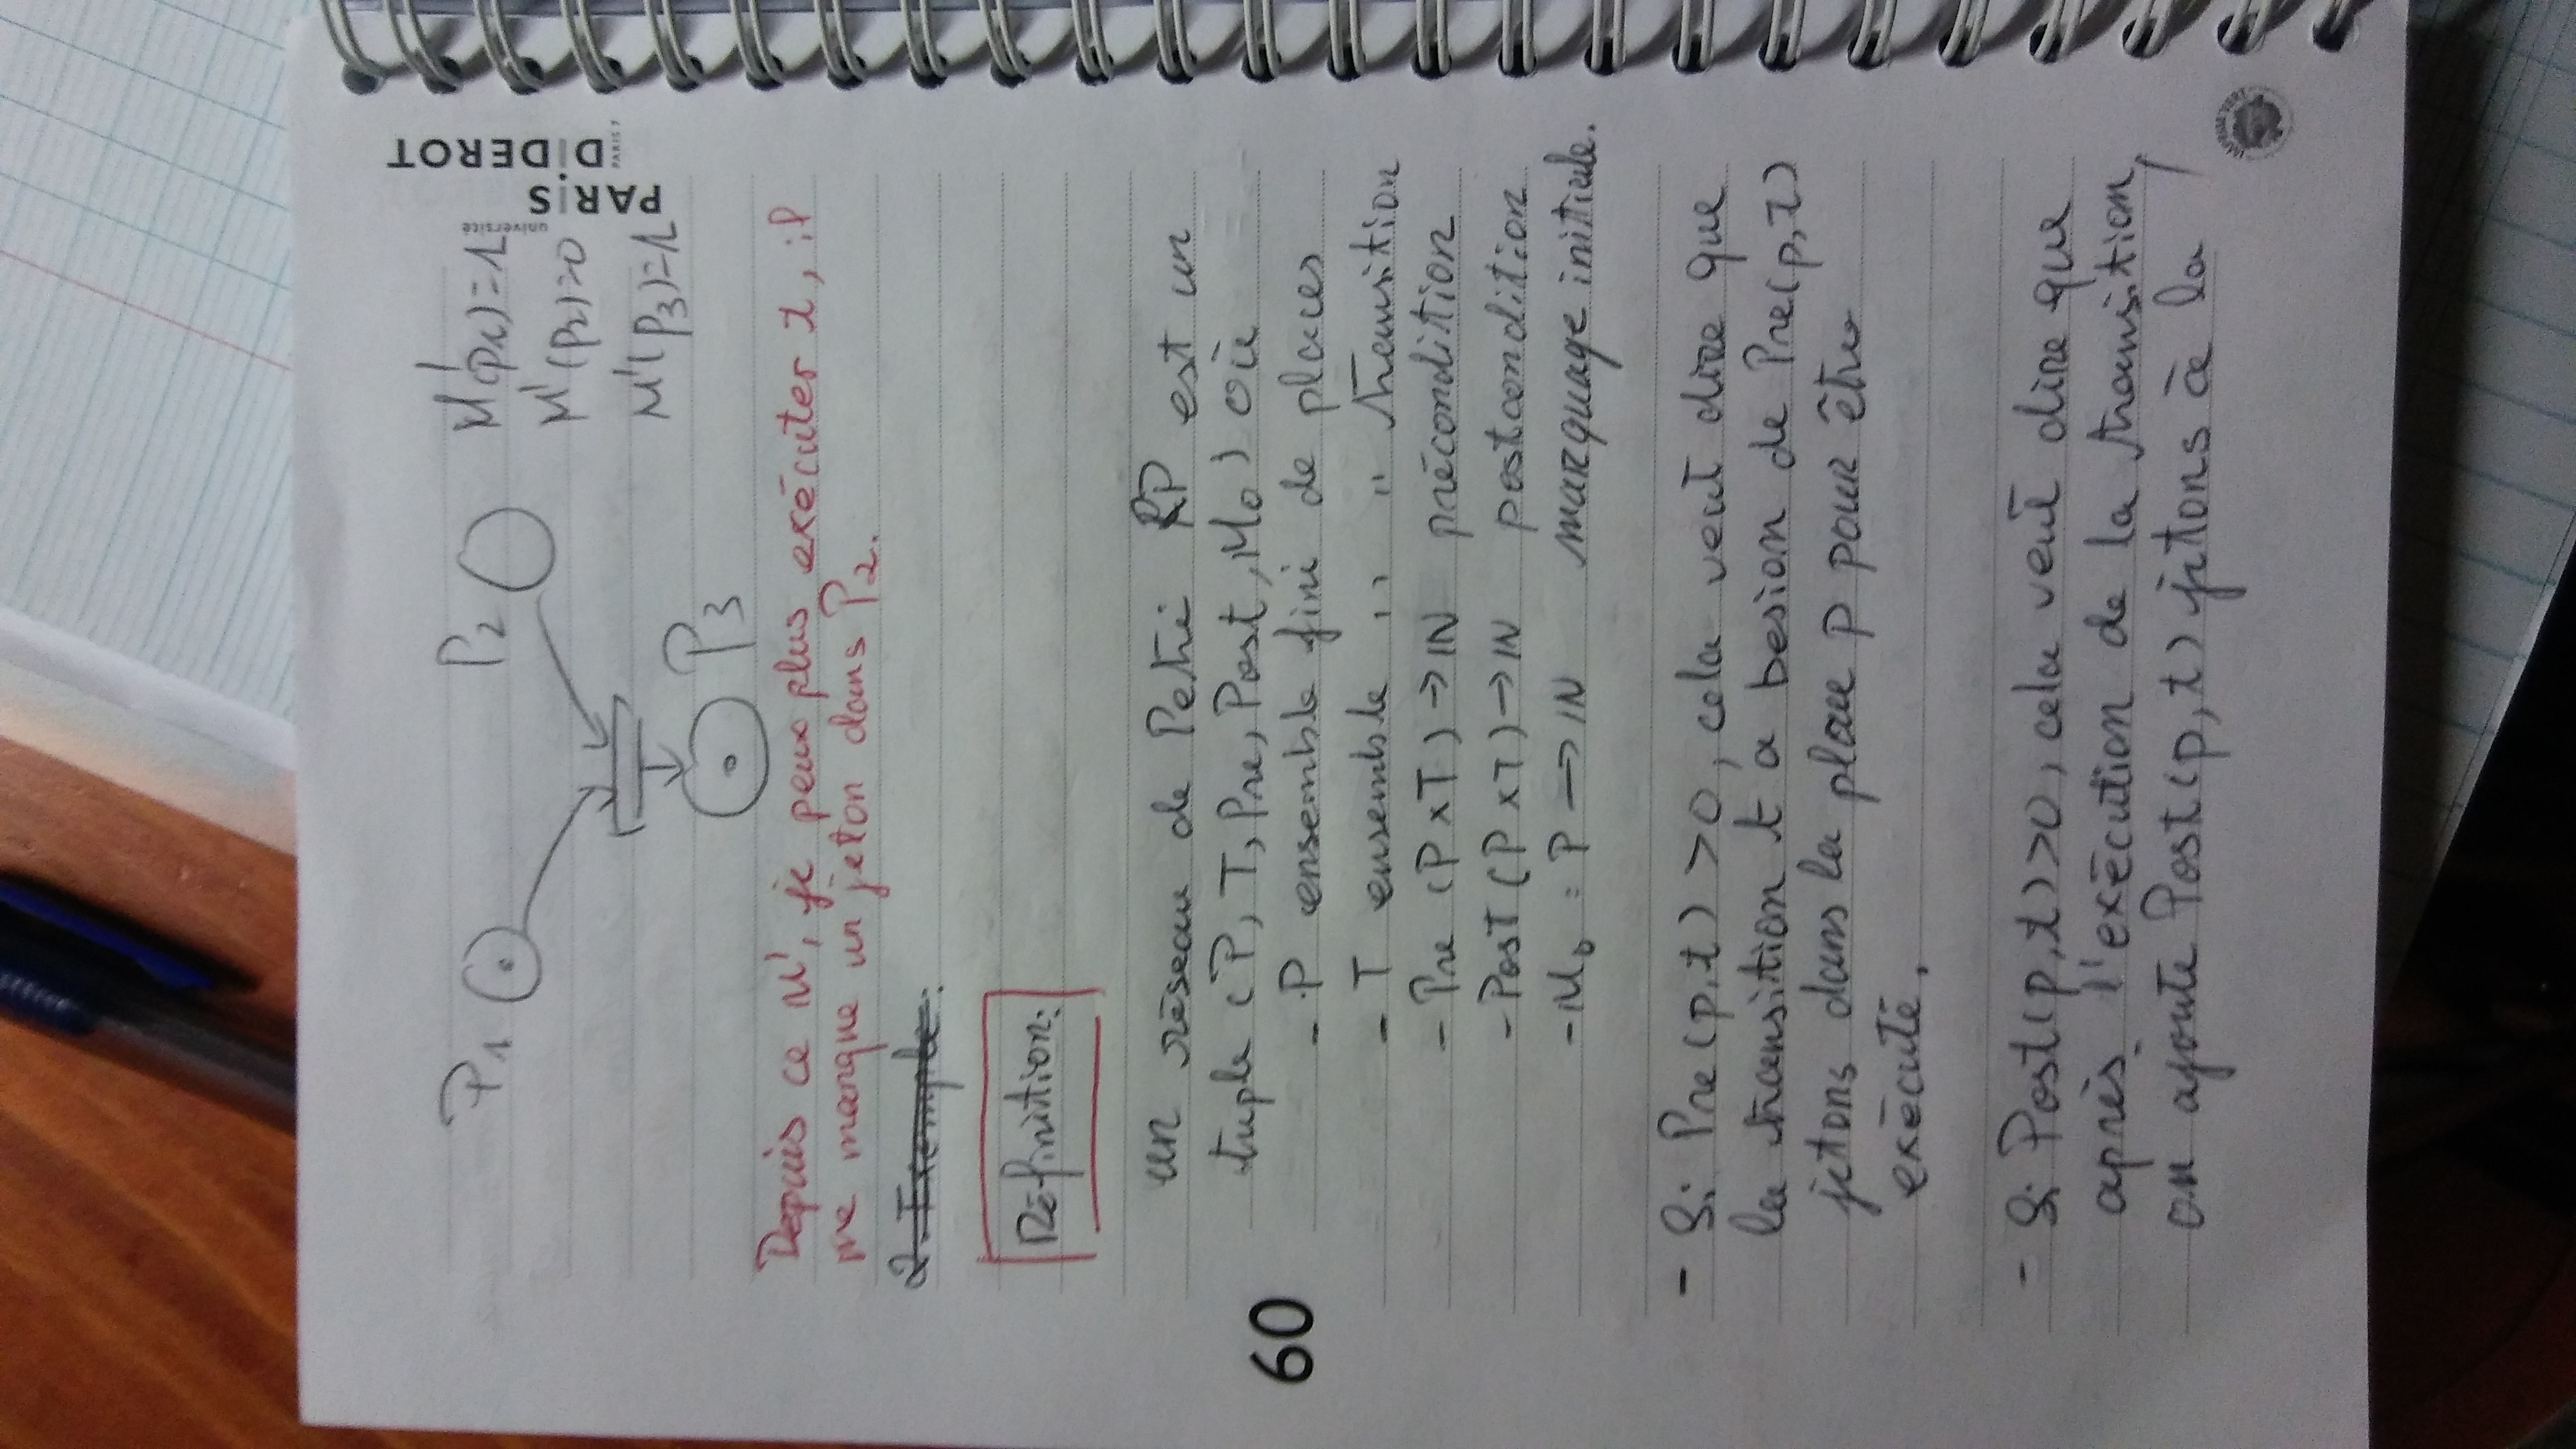 P1
P2
M'(p1)=1
M'(p2)=0
M'(p3)=1
P3
université
PARIS
DIDEROT
PARIS 7
Depuis ce M', je peux plus exécuter t, il
me manque un jeton dans P2.
2. Exemple:
Définition:
un réseau de Petri RP est un
tuple (P, T, Pre, Post, M0) où
60
- P ensemble fini de places
- T ensemble " " transition
- Pre (P x T) → IN précondition
- Post (P x T) → IN postcondition
- M0 : P → IN marquage initiale.
- Si Pre(p,t) >0, cela veut dire que
la transition t a besion de Pre(p,t)
jetons dans la place p pour être
exécuté.
- Si Post(p,t)>0, cela veut dire que
après l'exécution de la transition,
on ajoute Post(p,t) jetons à la
IMPRIM'VERT